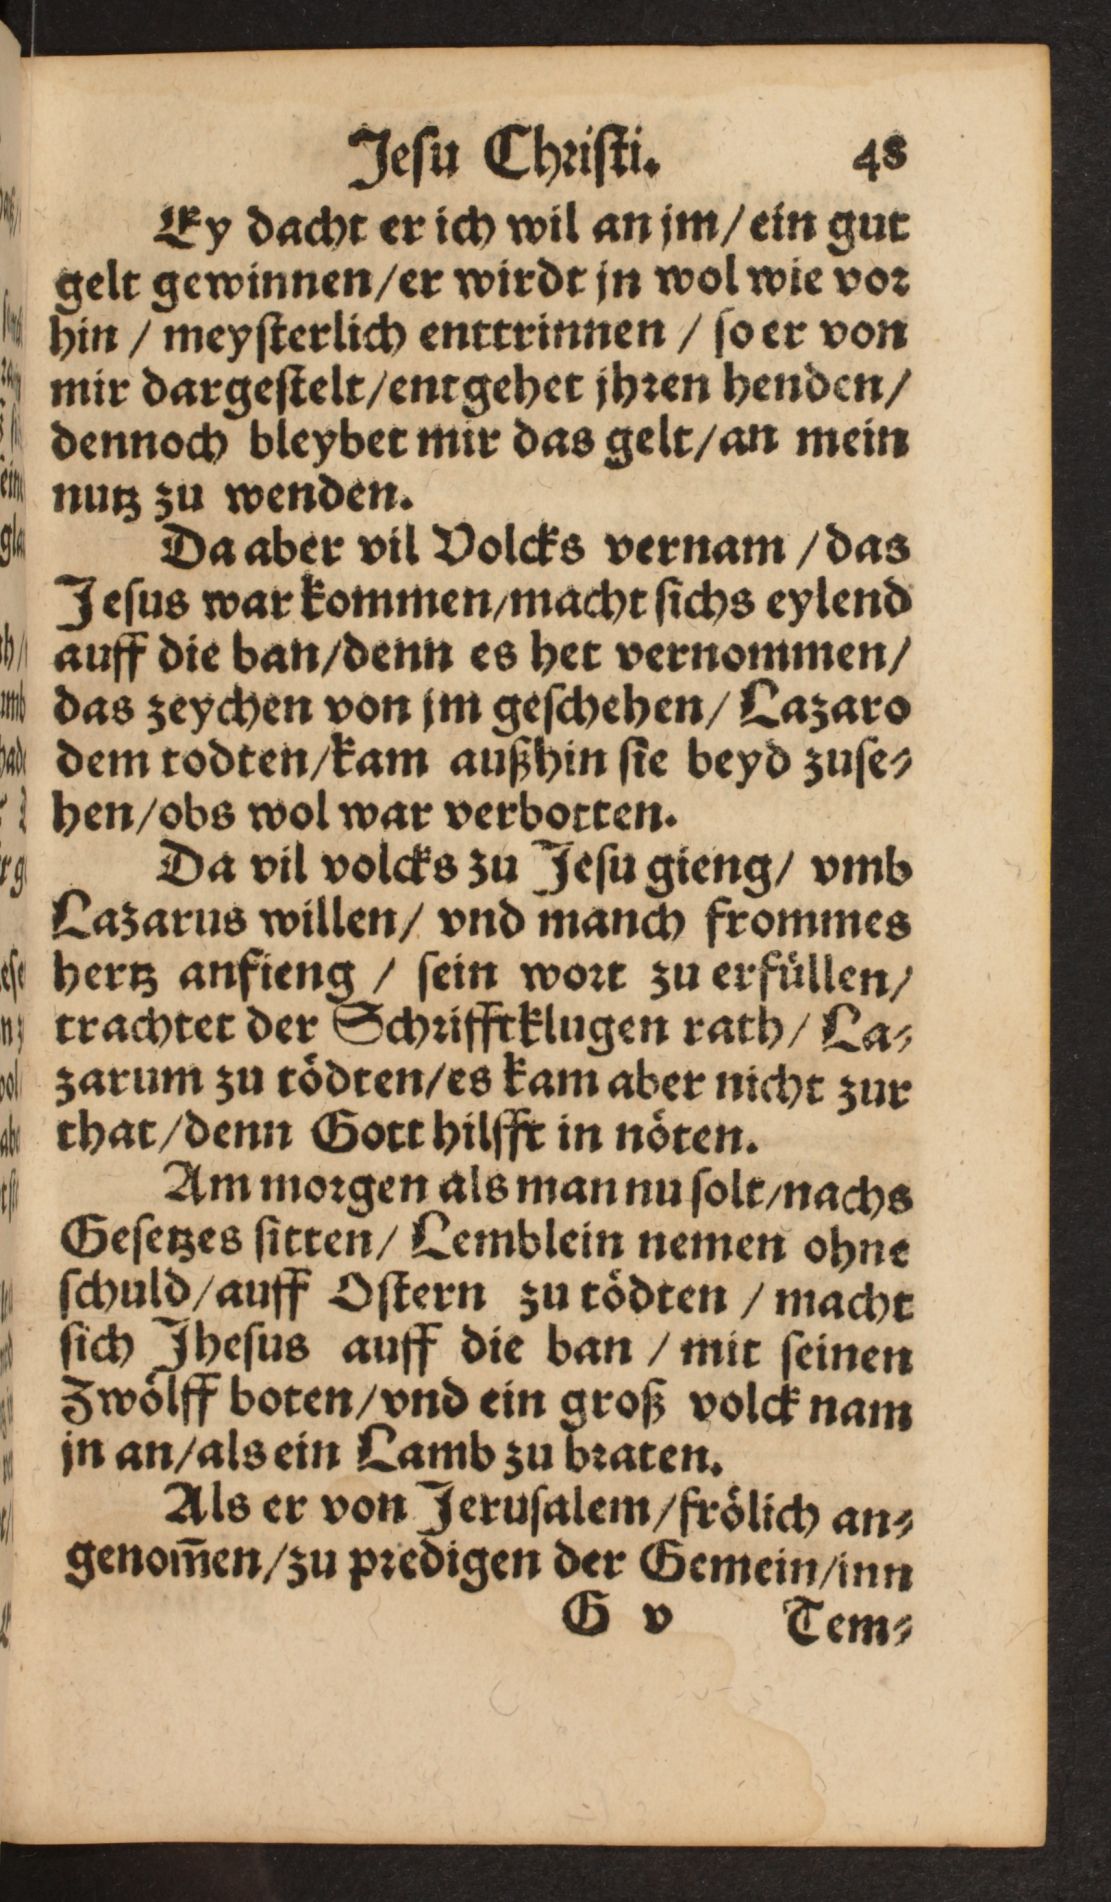 Jeſu Chriſti. 48
Ey dacht er ich wil an jm/ein gut
gelt gewinnen/er wirdt jn wol wie vor
hin / meyſterlich enttrinnen / ſo er von
mir dargeſtelt/entgehet jhren henden/
dennoch bleybet mir das gelt/an mein
nutz zu wenden.
Da aber vil Volcks vernam /das
Jeſus war kommen/macht ſichs eylend
auff die ban/denn es het vernommen/
das zeychen von jm geſchehen/ Lazaro
dem todten/kam außhin ſie beyd zuſe⸗
hen/obs wol war verbotten.
Da vil volcks zu Jeſu gieng/ vmb
Lazarus willen/ vnd manch frommes
hertz anfieng / ſein wort zu erfüllen/
trachtet der Schrifftklugen rath/ La⸗
zarum zu tödten/es kam aber nicht zur
that/denn Gott hilfft in nöten.
Am morgen als man nu ſolt/nachs
Geſetzes ſitten/ Lemblein nemen ohne
ſchuld/auff Oſtern zu tödten / macht
ſich Jheſus auff die ban / mit ſeinen
Zwölff boten/vnd ein groß volck nam
jn an/als ein Lamb zu braten.
Als er von Jeruſalem/frölich an⸗
genom̃en/zu predigen der Gemein/inn
G v Tem⸗